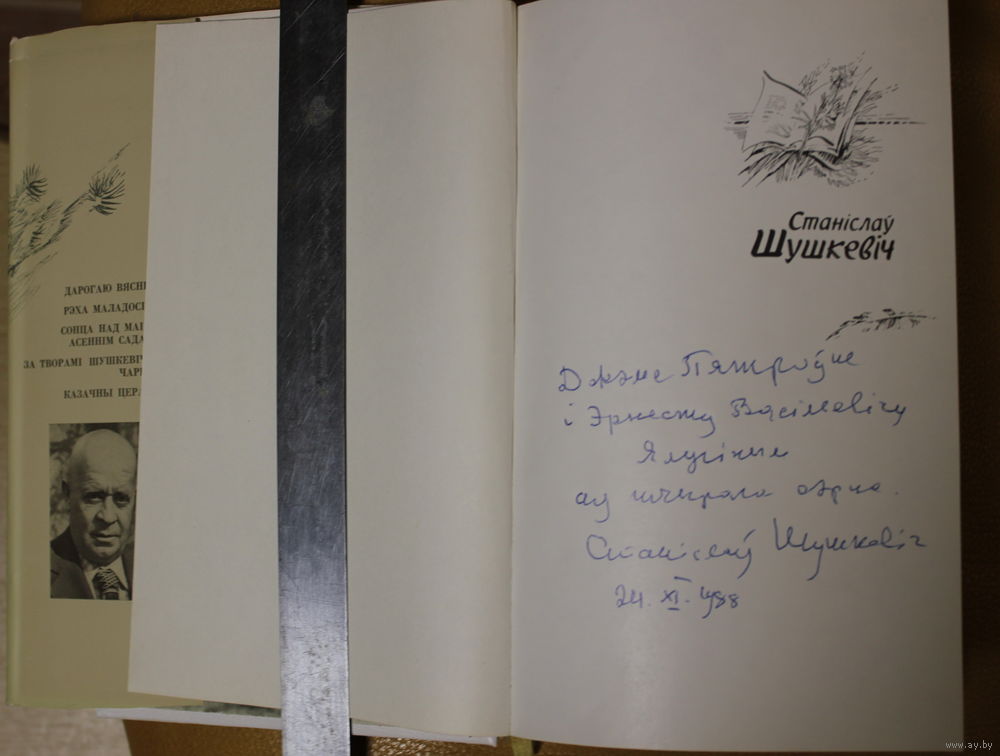 ДАРОГАЮ ВЯСН
РЭХА МАЛАДОС
СОНЦА НАД МА
АСЕННІМ САДА
ЗА ТВОРАМІ ШУШКЕВІЧ
ЧАР
КАЗАЧНЫ ЦЕРА
Станіслаў
Шушкевіч
Пятроўне
і Эрнесту Васілевічу
Ялугіным
ад шчырага сэрца.
Станіслаў Шушкевіч
24. XI. 1988
www.ay.by